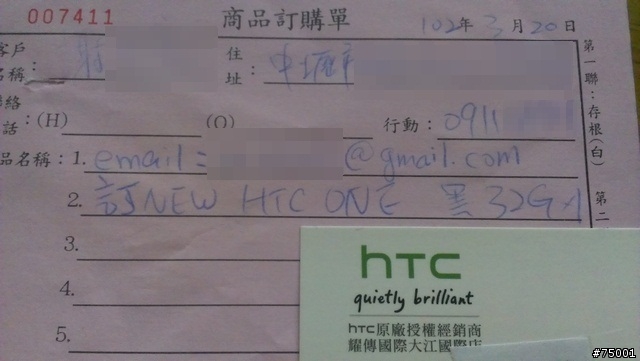 007411 商品訂購單 102年3月20日
客戶名稱: 住址: 中壢市
聯絡電話: (H) (O) 行動: 0911
品名稱: 1. email: @gmail.com
2. 訂NEW HTC ONE 黑 32G x1
3.
4.
5.
第一聯:存根(白)
第二
hTC
quietly brilliant
hTC原廠授權經銷商
耀傳國際大江國際店
#75001